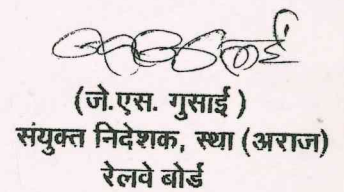 (जे.एस. गुसाई)
संयुक्त निदेशक, स्था (अराज)
रेलवे बोर्ड